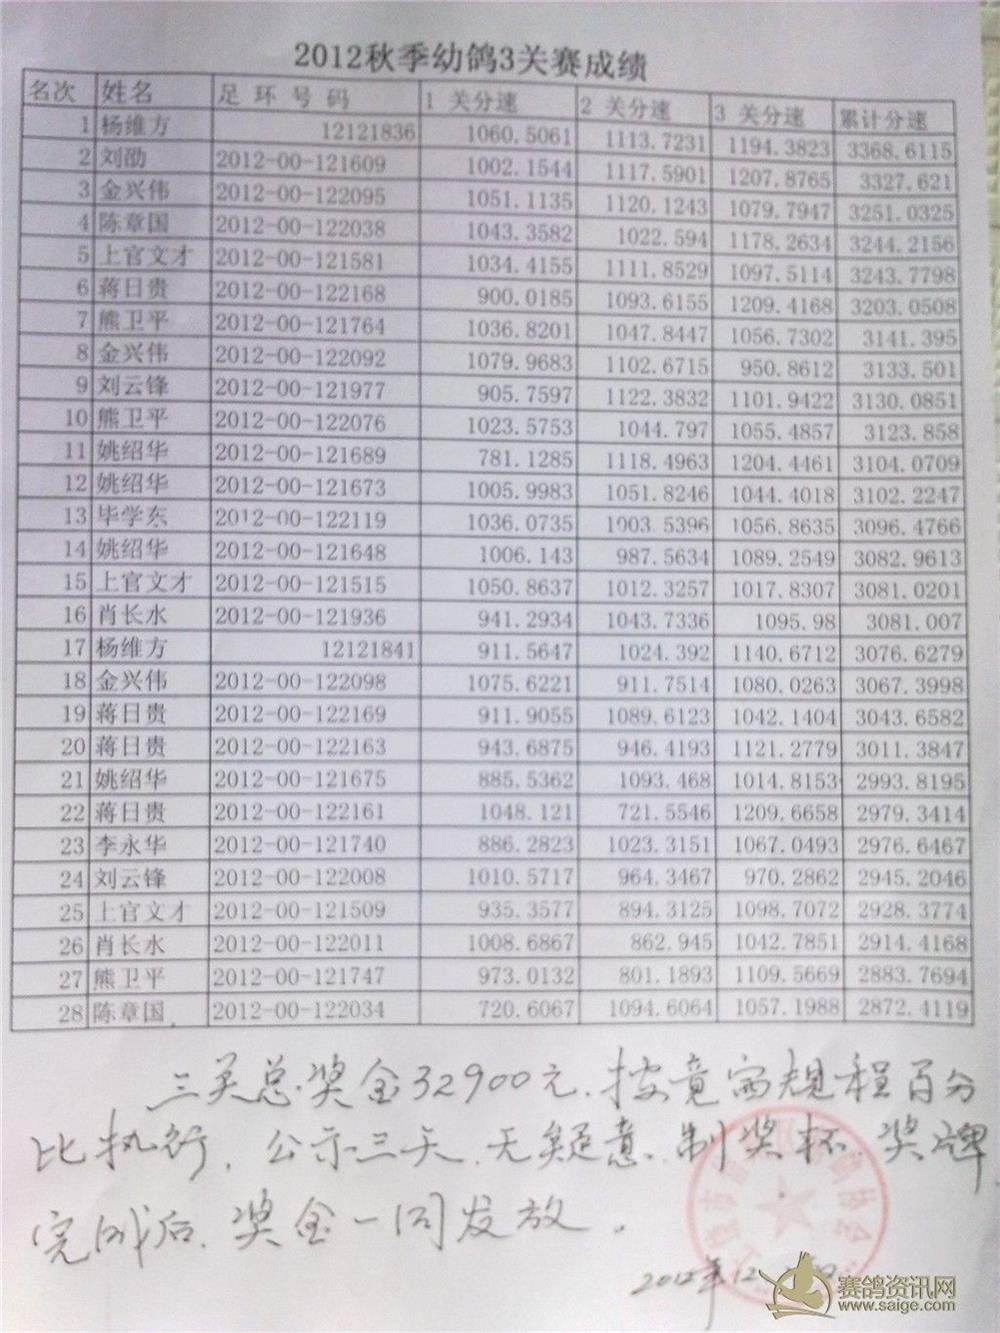 2012秋季幼鸽3关赛成绩
名次 姓名 足 环 号 码 1 关分速 2 关分速 3 关分速 累计分速
1 杨维方 12121836 1060.5061 1113.7231 1194.3823 3368.6115
2 刘劭 2012-00-121609 1002.1544 1117.5901 1207.8765 3327.621
3 金兴伟 2012-00-122095 1051.1135 1120.1243 1079.7947 3251.0325
4 陈章国 2012-00-122038 1043.3582 1022.594 1178.2634 3244.2156
5 上官文才 2012-00-121581 1034.4155 1111.8529 1097.5114 3243.7798
6 蒋日贵 2012-00-122168 900.0185 1093.6155 1209.4168 3203.0508
7 熊卫平 2012-00-121764 1036.8201 1047.8447 1056.7302 3141.395
8 金兴伟 2012-00-122092 1079.9683 1102.6715 950.8612 3133.501
9 刘云锋 2012-00-121977 905.7597 1122.3832 1101.9422 3130.0851
10 熊卫平 2012-00-122076 1023.5753 1044.797 1055.4857 3123.858
11 姚绍华 2012-00-121689 781.1285 1118.4963 1204.4461 3104.0709
12 姚绍华 2012-00-121673 1005.9983 1051.8246 1044.4018 3102.2247
13 毕学东 2012-00-122119 1036.0735 1003.5396 1056.8635 3096.4766
14 姚绍华 2012-00-121648 1006.143 987.5634 1089.2549 3082.9613
15 上官文才 2012-00-121515 1050.8637 1012.3257 1017.8307 3081.0201
16 肖长水 2012-00-121936 941.2934 1043.7336 1095.98 3081.007
17 杨维方 12121841 911.5647 1024.392 1140.6712 3076.6279
18 金兴伟 2012-00-122098 1075.6221 911.7514 1080.0263 3067.3998
19 蒋日贵 2012-00-122169 911.9055 1089.6123 1042.1404 3043.6582
20 蒋日贵 2012-00-122163 943.6875 946.4193 1121.2779 3011.3847
21 姚绍华 2012-00-121675 885.5362 1093.468 1014.8153 2993.8195
22 蒋日贵 2012-00-122161 1048.121 721.5546 1209.6658 2979.3414
23 李永华 2012-00-121740 886.2823 1023.3151 1067.0493 2976.6467
24 刘云锋 2012-00-122008 1010.5717 964.3467 970.2862 2945.2046
25 上官文才 2012-00-121509 935.3577 894.3125 1098.7072 2928.3774
26 肖长水 2012-00-122011 1008.6867 862.945 1042.7851 2914.4168
27 熊卫平 2012-00-121747 973.0132 801.1893 1109.5669 2883.7694
28 陈章国 2012-00-122034 720.6067 1094.6064 1057.1988 2872.4119
三关总奖金32900元.按竞赛规程百分
比执行.公示三天.无疑意.制奖杯.奖牌.
完成后.奖金一同发放.
2012年12
赛鸽资讯网
www.saige.com